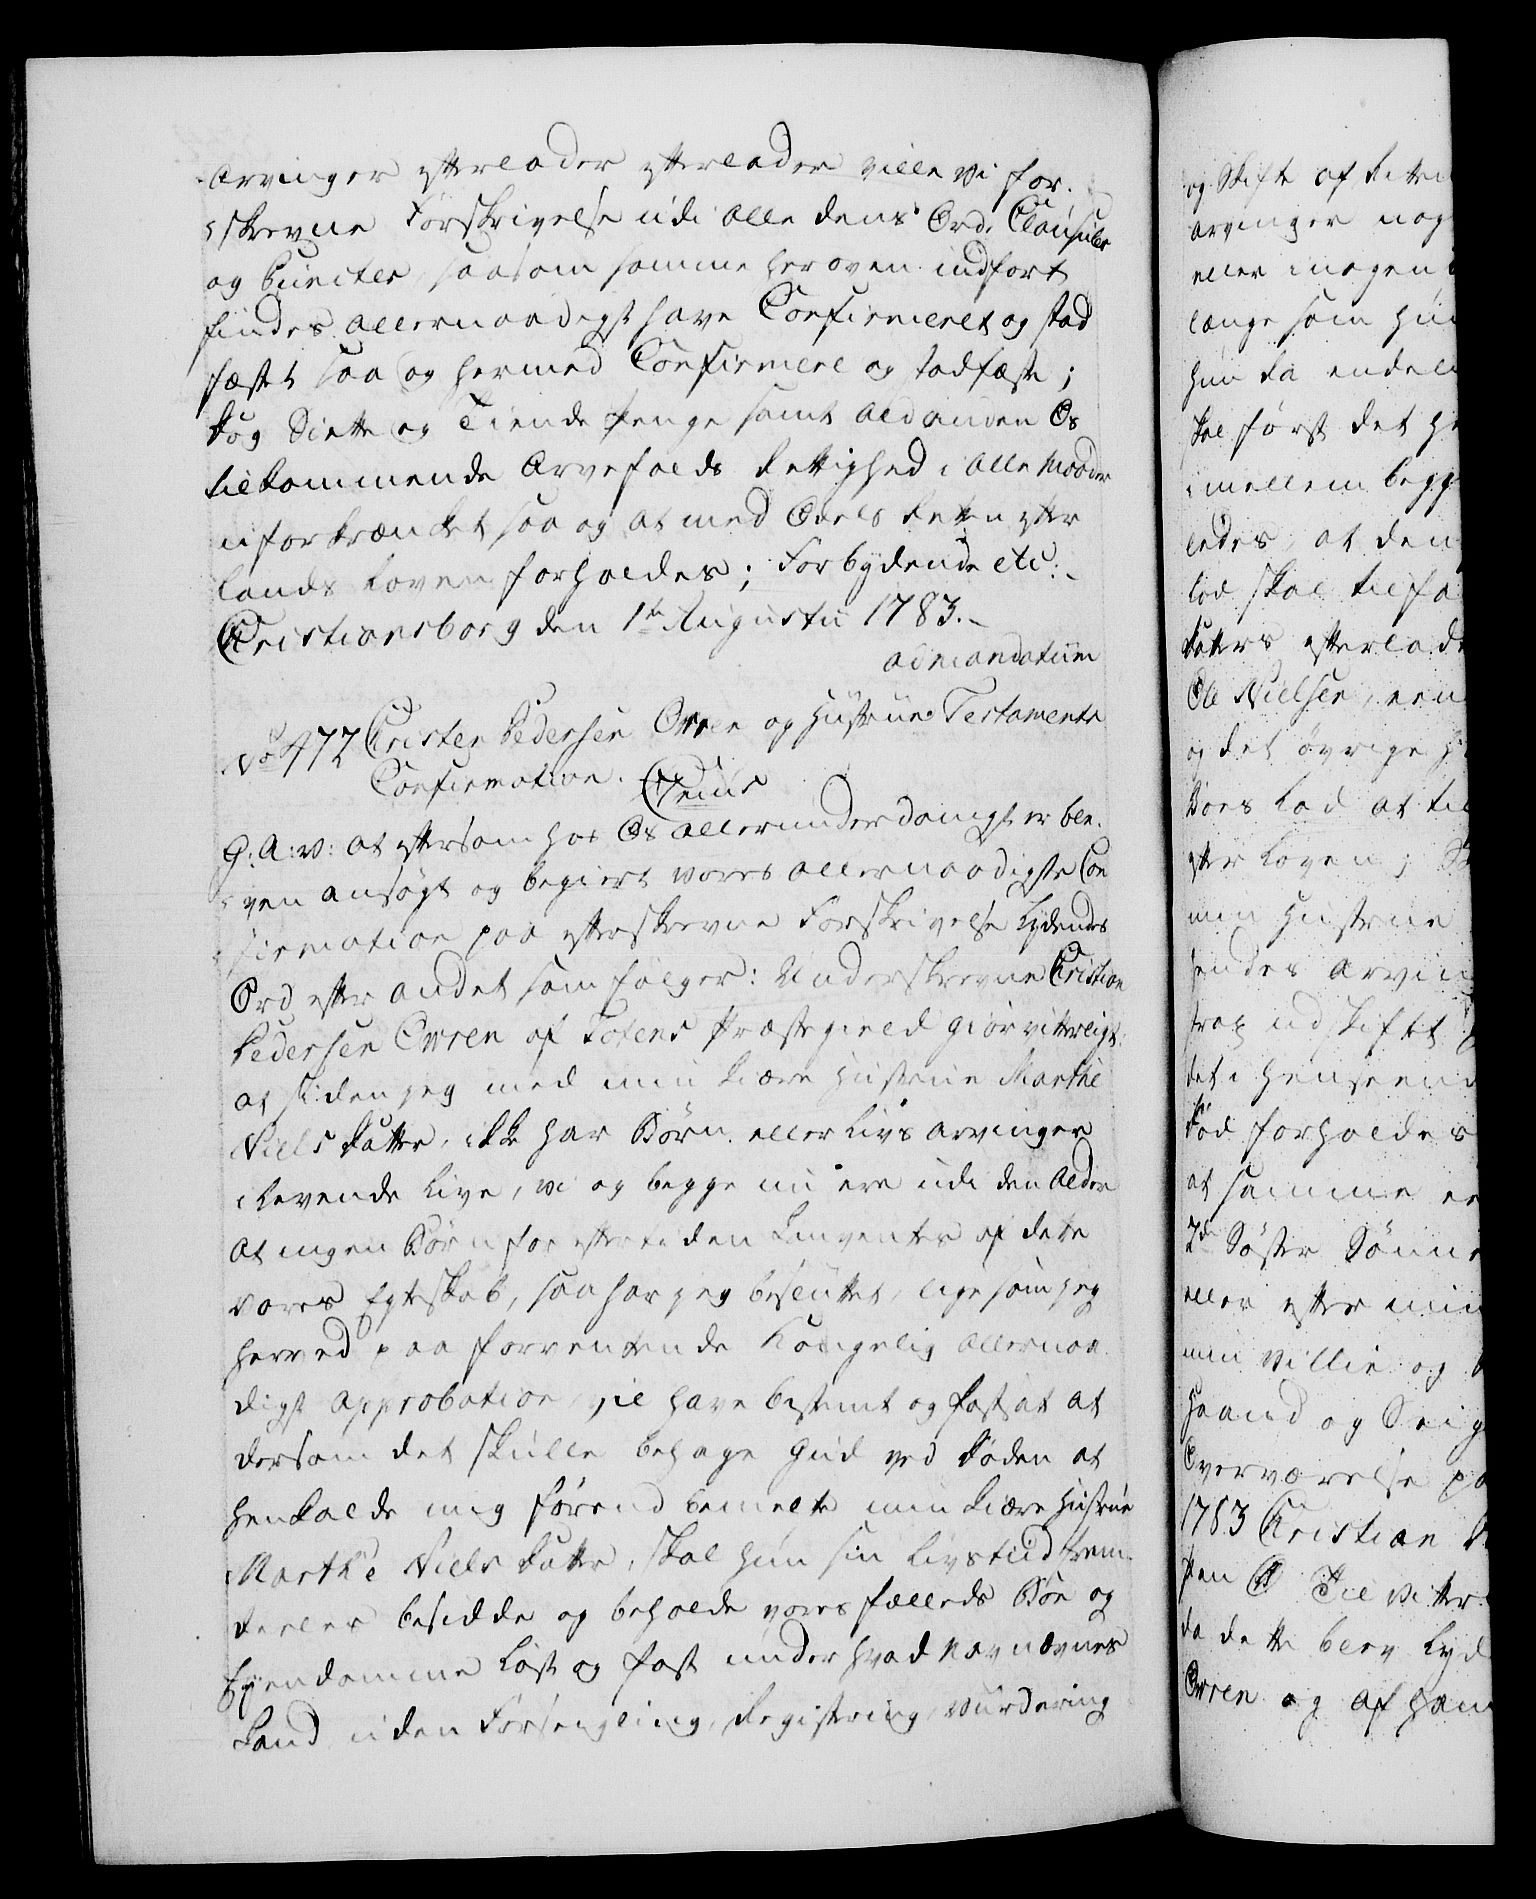 Arvinger efterlader efterlader ville vi for-
skrevne Forskrivelse udi alle dens Ord, Clausuler
og Puncter, saasom samme heroven indført
findes allernaadigst have Confirmeret og stad
fæstet saa og hermed Confirmere og stadfæste;
Dog Siette og Tiende Penge samt ald anden Os
tilkommende Arvefalds Rettighed i alle Maader
uforkrænket saa og at med Odels Retten efter
Lands Loven forholdes; Forbydende etc:
Christiansborg den 1te Augustii 1783.
ad mandatum
No 472 Christen Pedersen Ovren og Hustrue Testaments
Confirmation. Gratis
G: A: V: at eftersom hos Os allerunderdanigst er ble-
ven ansøgt og begiert vores allernaadigste Con
firmation paa efterskrevne Forskrivelse Lydende
Ord efter andet som følger: Underskrevne Christian
Pedersen Ovren af Totens Præstegield giør vitterligt:
at siden jeg med min kiære Hustrue Marthe
Niels Datter, ikke har Børn eller Livs arvinger
i levende Live, vi og begge nu ere udi den Alder
at ingen Børn for eftertiden kan ventes af dette
vores Egteskab, saa har jeg besluttet, lige som jeg
herved paa forventende Kongelig allernaa
digst approbation, vil have bestemt og fastsat at
dersom det skulle behage Gud ved Døden at
henkalde mig førend bemelte min kiære Hustrue
Marthe Niels Datter, skal hun sin Livstiid frem-
deeles besidde og beholde vores fælleds Boe og
Eiendomme Løst og fast under hvad Navn nævnes
kand uden Forsegling, Registering, Vurdering
og Skifte af
arvinger nog
eller
længe som hun
hun da endel
skal først det
imellem begge
ledes, at den
lod skal tilfa
Datters efterlad
Ole Nielsen,
og det øvrige
Boes Lod at til
efter Loven;
min Hustrue
hendes Arvin
strax udskiftt
det i henseend
Død forholdes
at samme er
2de Søster Sønner
eller efter min
min Villie og
Haand og Seigl
Overværelse pa
1783 Christian
sen Til vitter
da dette blev Lyd
Ovren og af ham